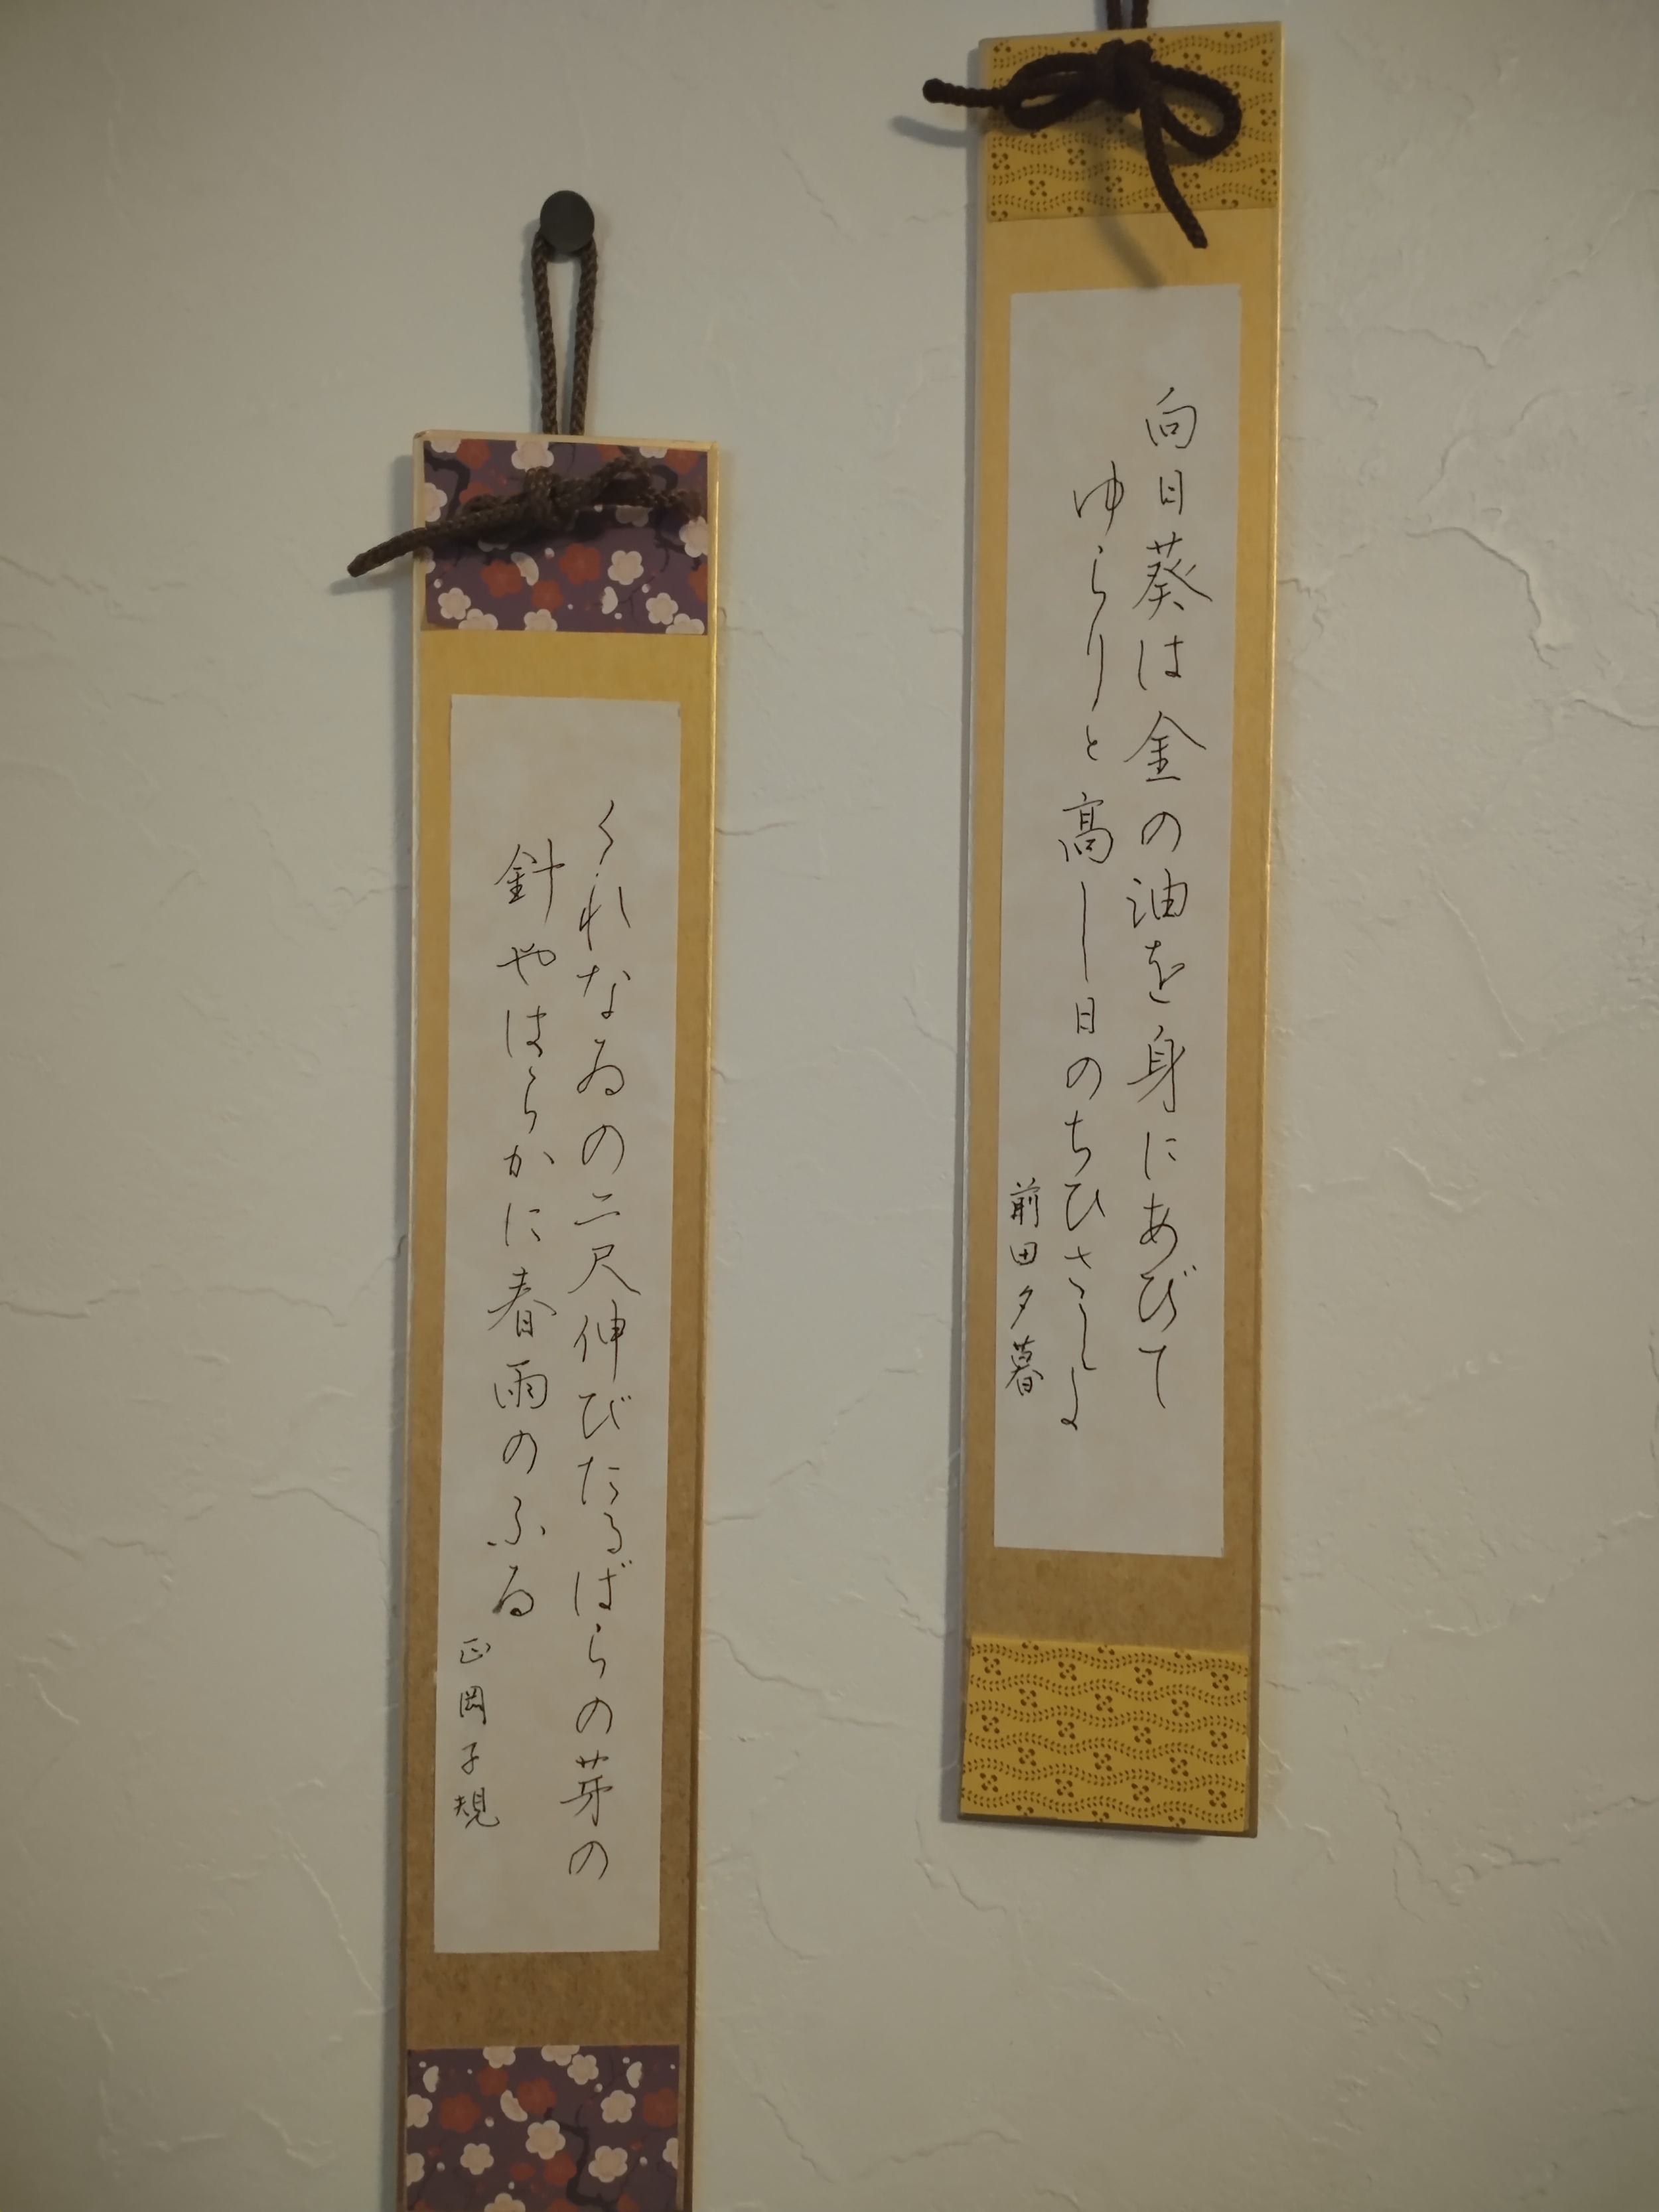 向日葵は金の油を身にあびて
ゆらりと高し日のちひさしよ
前田夕暮
くれなゐの二尺伸びたるばらの芽の
針やはらかに春雨のふる
正岡子規